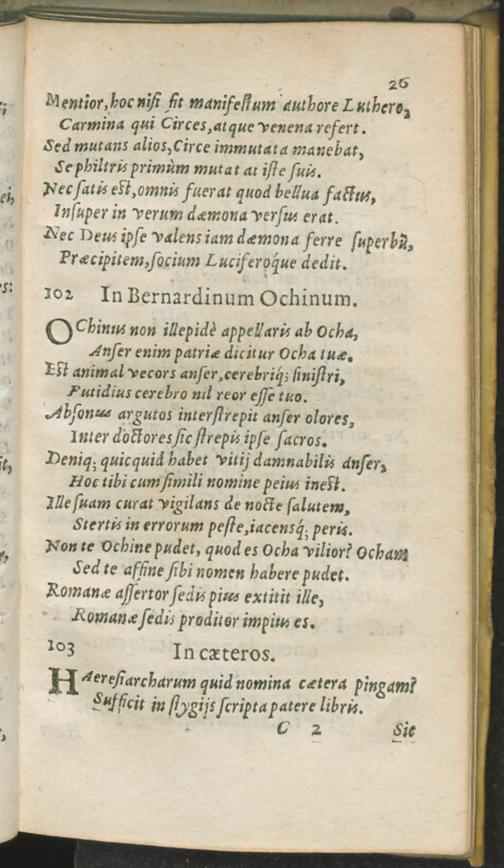 26
Mentior, hoc nisi sit manifestum authore Luthero,
Carmina qui Circes, atque venena refert.
Sed mutans alios, Circe immutata manebat,
Se philtris primùm mutat at iste suis.
Nec satis est, omnis fuerat quod bellua factus,
Insuper in verum dæmona versus erat.
Nec Deus ipse valens iam dæmona ferre superbũ,
Præcipitem, socium Luciferoq́ue dedit.
102 In Bernardinum Ochinum.
OChinus non illepidè appellaris ab Ocha,
Anser enim patriæ dicitur Ocha tuæ.
Est animal vecors anser, cerebriq; sinistri,
Putidius cerebro nil reor esse tuo.
Absonus argutos interstrepit anser olores,
Inter doctores sic strepis ipse sacros.
Deniq; quicquid habet vitij damnabilis anser,
Hoc tibi cum simili nomine peius inest.
Ille suam curat vigilans de nocte salutem,
Stertis in errorum peste, iacensq́; peris.
Non te Ochine pudet, quod es Ocha vilior? Ocham
Sed te affine sibi nomen habere pudet.
Romanæ assertor sedis pius extitit ille,
Romanæ sedis proditor impius es.
103 In cæteros.
HAeresiarcharum quid nomina cætera pingam?
Sufficit in stygijs scripta patere libris.
C 2 Sic